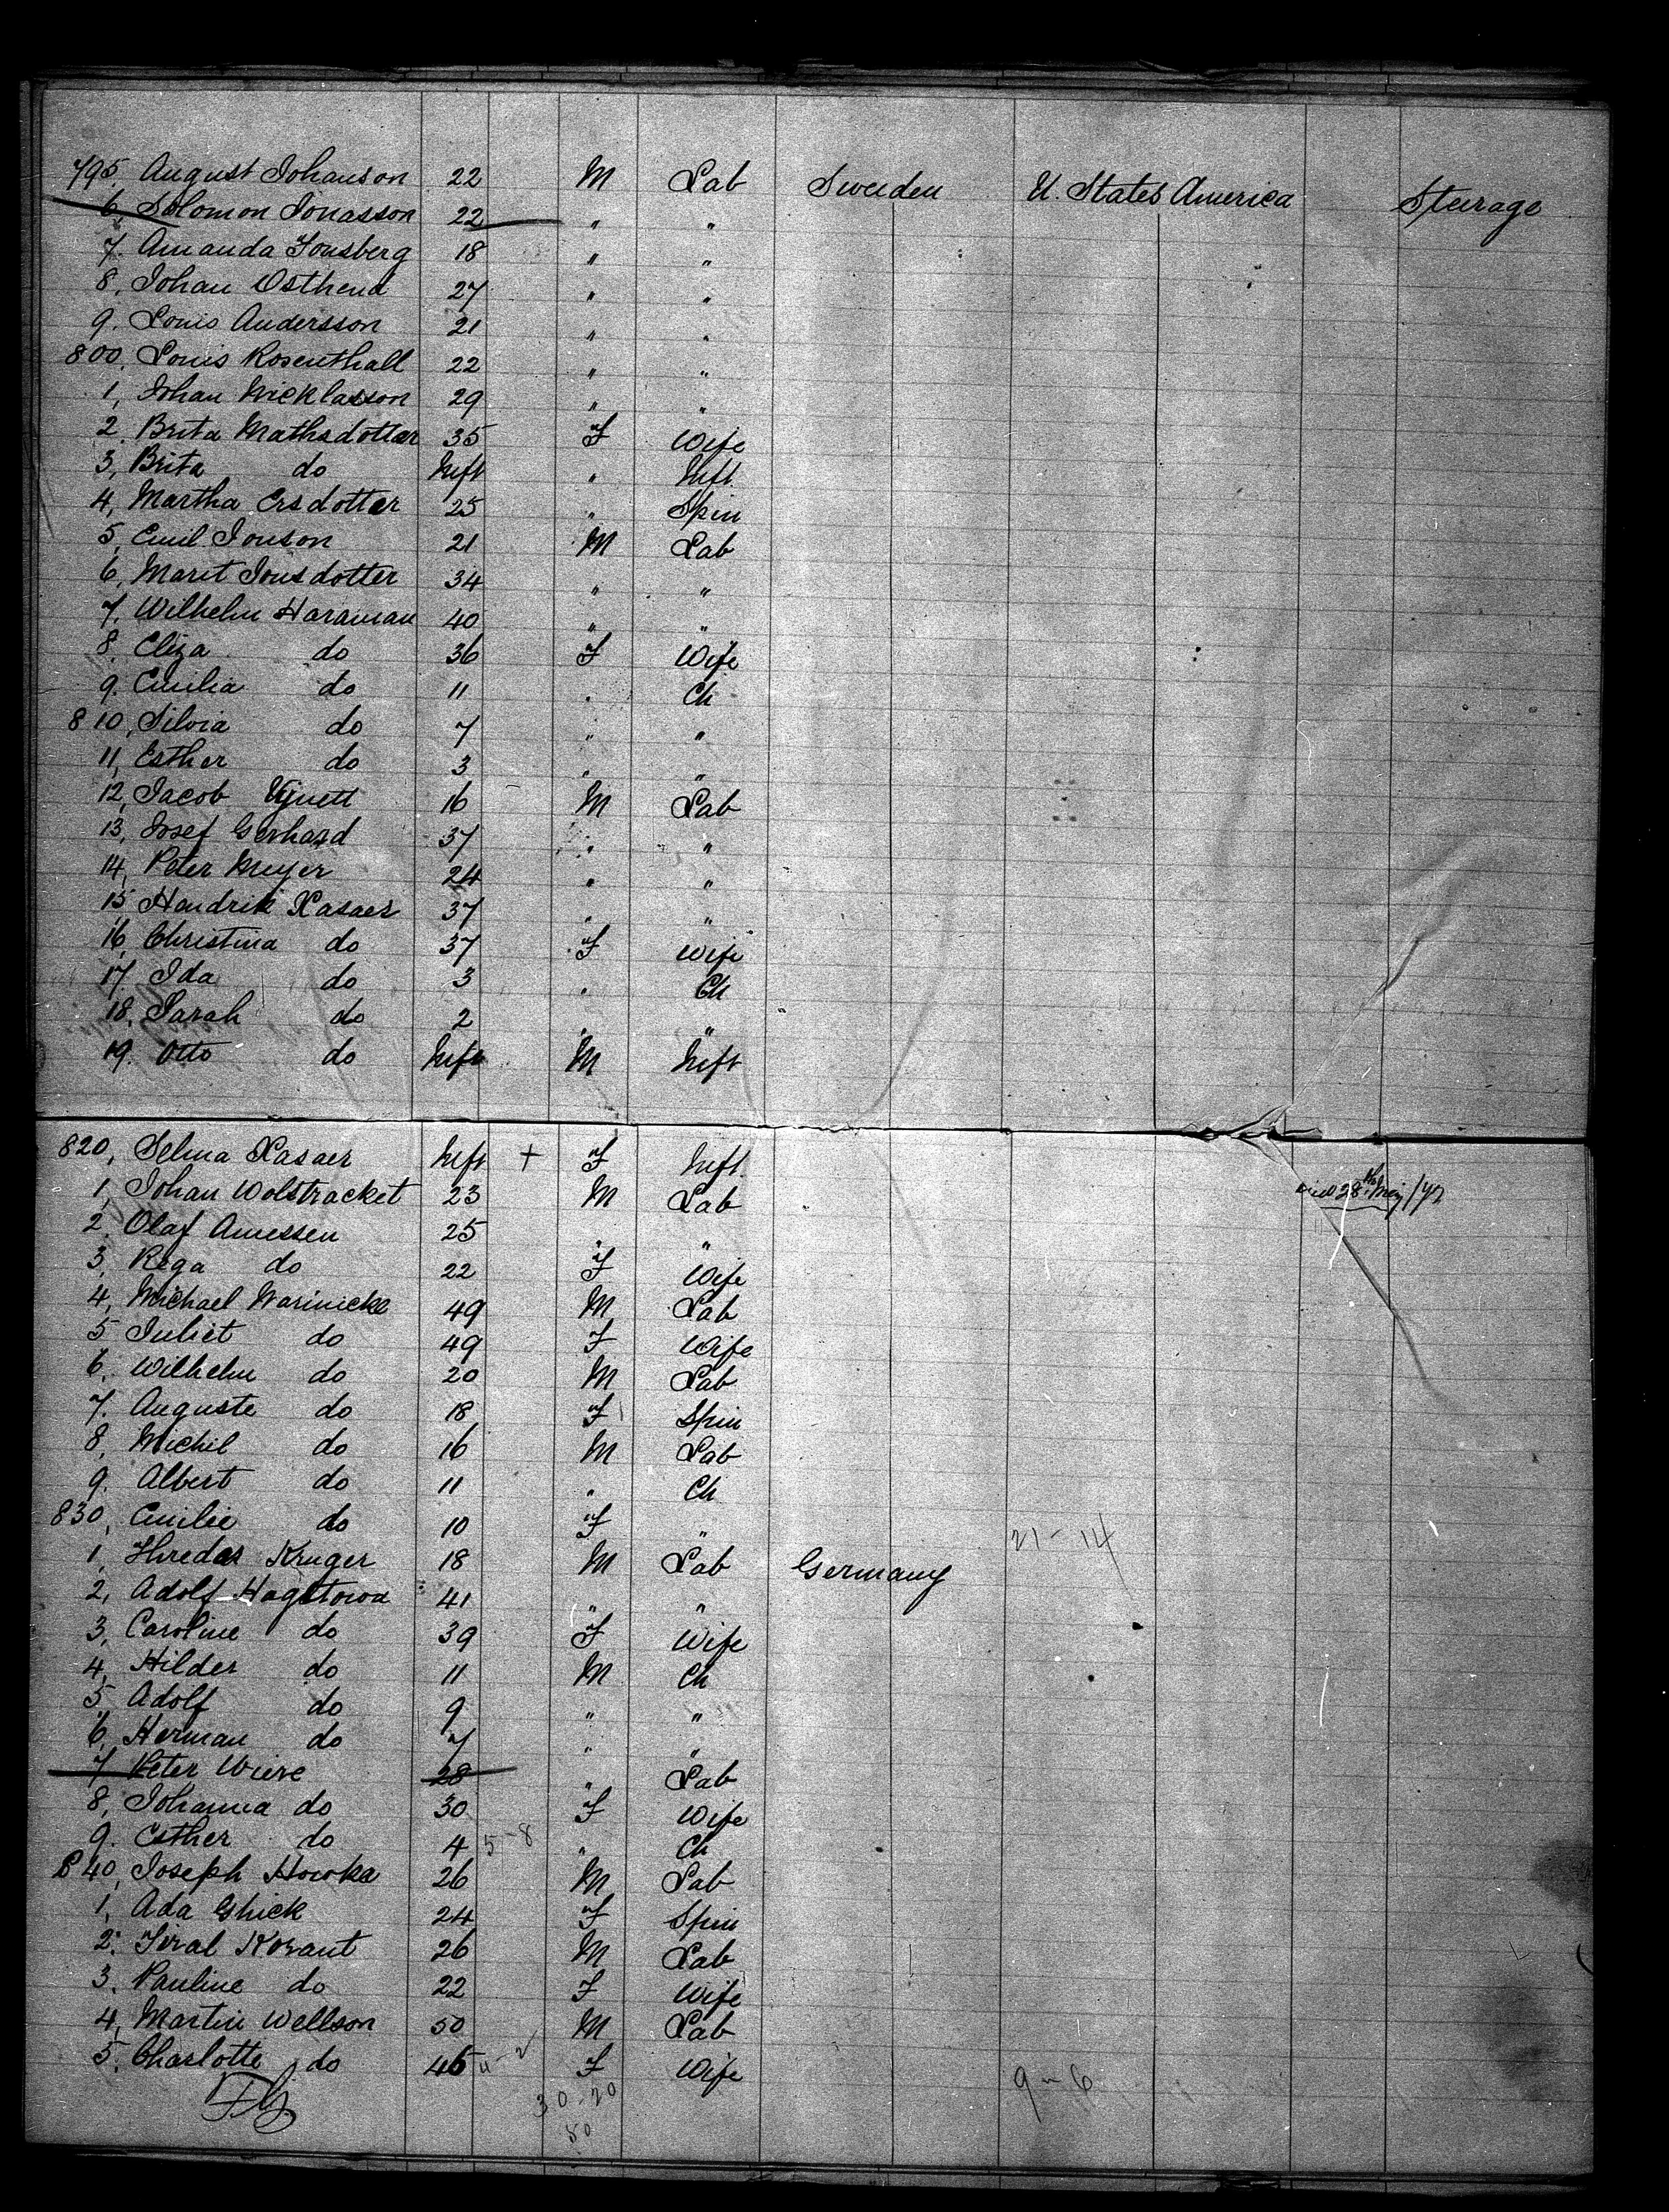 795, August Johanson 22 M Lab Sweden U. States America Steerage
6, Solomon Jonasson 22 " "
7. Amanda Fonsberg 18 " "
8, Johan Osthend 27 " "
9. Louis Andersson 21 " "
800, Louis Rosenthall 22 " "
1, Johan Nicklasson 29 " "
2, Brita Mathsdotter 35 F Wife
3, Brita do Inft " Inft
4, Martha Ersdotter 25 " Spin
5, Emil Jonson 21 M Lab
6, Marit Jonsdotter 34 " "
7. Wilhelm Haraman 40 " "
8, Eliza do 36 F Wife
9. Emilia do 11 " Ch
810, Silvia do 7 " "
11, Esther do 3 " "
12, Jacob 16 M Lab
13, Josef Gerhard 37 " "
14, Peter Meyer 24 " "
15 Hendrik Kasaer 37 " "
16, Christina do 37 F Wife
17, Ida do 3 " Ch
18, Sarah do 2 " "
19. Otto do Inft M Inft
820, Selma Kasaer Inft + F Inft
1, Johan Wolstracket 23 M Lab Died 28th May /72
2, Olaf Amessen 25 " "
3, Rega do 22 F Wife
4, Michael Warinicke 49 M Lab
5 Juliet do 49 F Wife
6, Wilhelm do 20 M Lab
7. Auguste do 18 F Spin
8, Michil do 16 M Lab
9. Albert do 11 " Ch
830, Emilie do 10 F " 21-14
1, Kruger 18 M Lab Germany
2, Adolf Hagstowa 41 " "
3, Caroline do 39 F Wife
4, Hilder do 11 M Ch
5, Adolf do 9 " "
6, Herman do 7 " "
7 Peter Wiere 28 " Lab
8, Johanna do 30 F Wife
9. Esther do 4 5-8 " Ch
840, Joseph Howka 26 M Lab
1, Ada Ghick 24 F Spin
2, Korant 26 M Lab
3. Pauline do 22 F Wife
4, Martin Wellson 50 M Lab
5. Charlotte do 45 F Wife
9-6
30-20
50